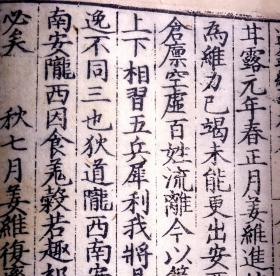 甘露元年春正月姜維進
為維力已竭未能更出安西
倉廩空虛百姓流離今以策
上下相習五兵犀利我將
逸不同三也狄道隴西南安
南安隴西因食羌穀若趣祁
必矣 秋七月姜維復